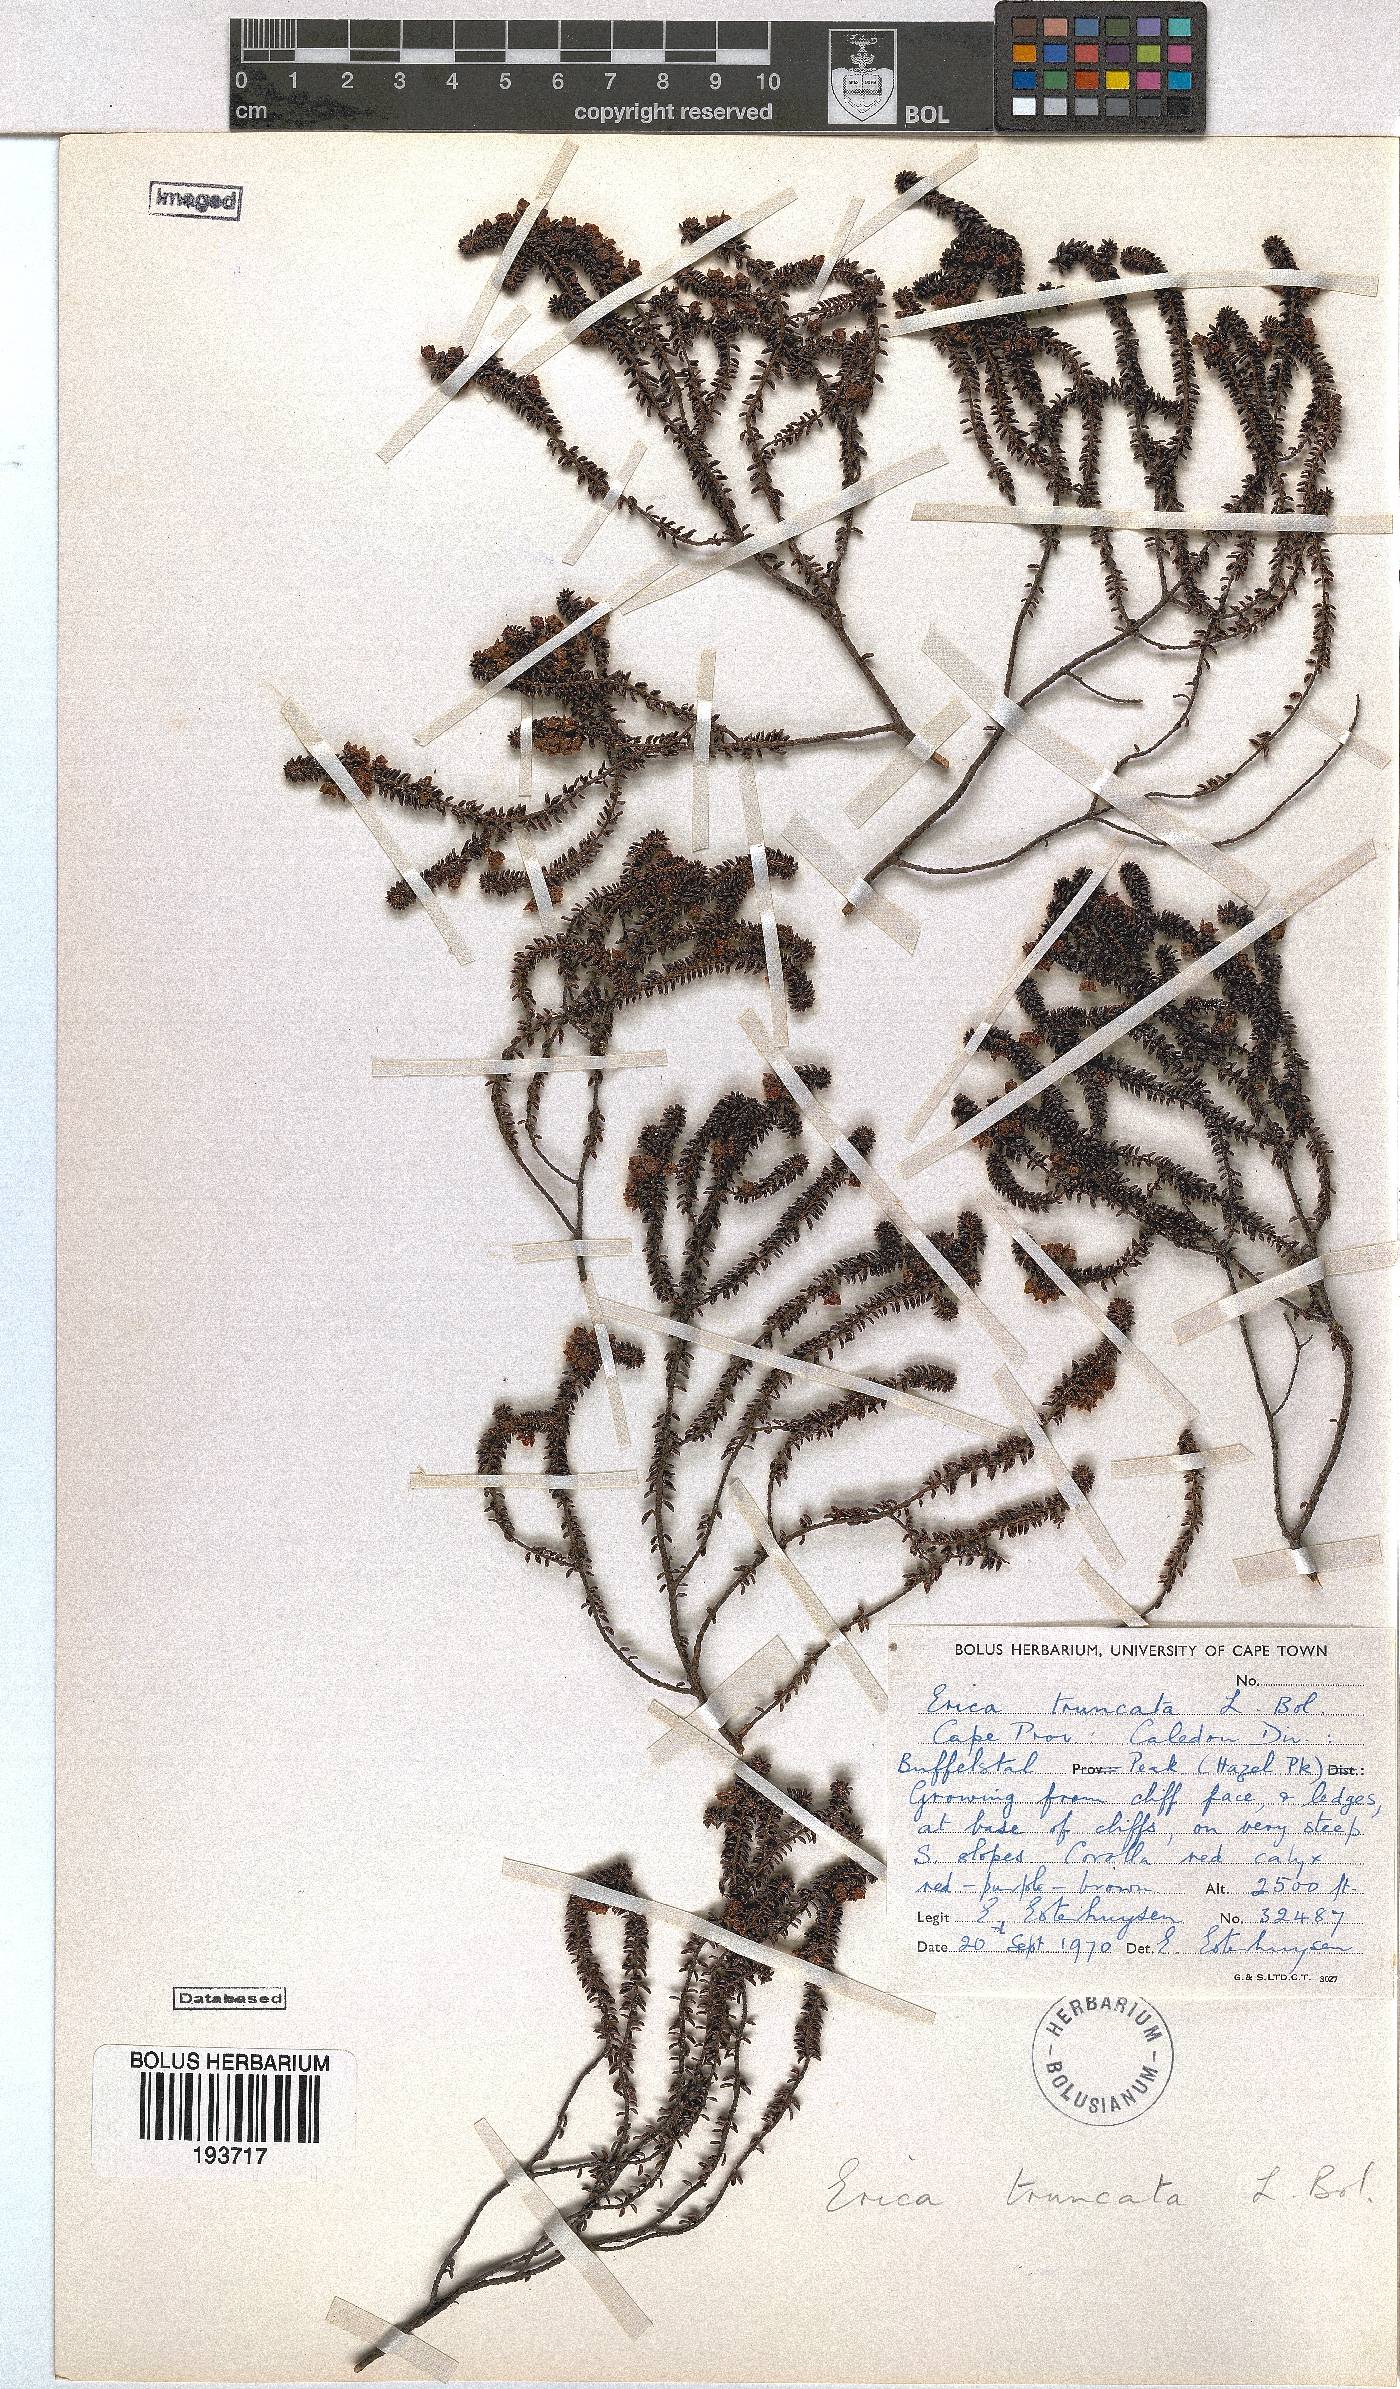 0 1 2 3 4 5 6 7 8 9 10
cm copyright reserved BOL
Imaged
BOLUS HERBARIUM, UNIVERSITY OF CAPE TOWN
No.
Erica truncata L. Bol.
Cape Prov: Caledon Div.:
Buffelstal Prov. Peak (Hazel Pk) Dist.:
Growing from cliff face, & ledges,
at base of cliffs, on very steep
S. slopes Corolla red calyx
red-purple-brown Alt. 2500 ft.
Legit E. Esterhuysen No. 32487
Date 20th Sept 1970 Det. E. Esterhuysen
G. & S. LTD. C.T. 3027
HERBARIUM
BOLUSIANUM
Databased
BOLUS HERBARIUM
193717
Erica truncata L. Bol.